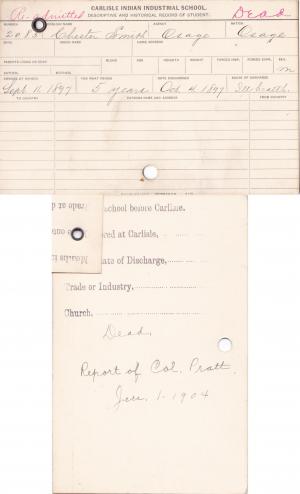 Readmitted CARLISLE INDIAN INDUSTRIAL SCHOOL. Dead.
DESCRIPTIVE AND HISTORICAL RECORD OF STUDENT.
NUMBER AGENCY NATION
2083 Chester Smith Osage Osage
BAND INDIAN NAME HOME ADDRESS
PARENTS LIVING OR DEAD BLOOD AGE HEIGHT WEIGHT FORCED INSP. FORCED EXPR. SEX
FATHER, MOTHER, M
ARRIVED AT SCHOOL FOR WHAT PERIOD DATE DISCHARGED CAUSE OF DISCHARGE
Sept. 11, 1897 5 years Oct. 4, 1897 Ill health
TO COUNTRY PATRONS NAME AND ADDRESS FROM COUNTRY
School before Carlisle.
at Carlisle,
ate of Discharge,
Trade or Industry,
Church.
Dead.
Report of Col. Pratt.
Jan. 1-1904